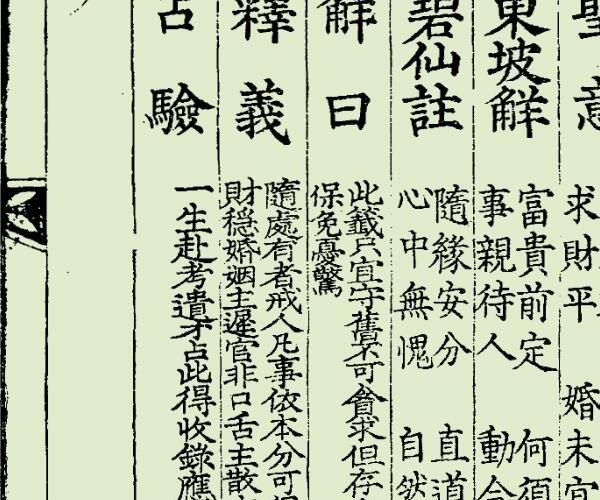 聖意
求財平 婚未
東坡解
富貴前定 何須
事親待人 動合
碧仙註
隨緣安分 直道
心中無愧 自然
解曰
此籤只宜守舊不可貪求但存
保免憂驚
釋義
隨處有者戒人凡事依本分可
財穩婚姻主遲官非口舌主散
占驗
一生赴考遺才占此得收錄應